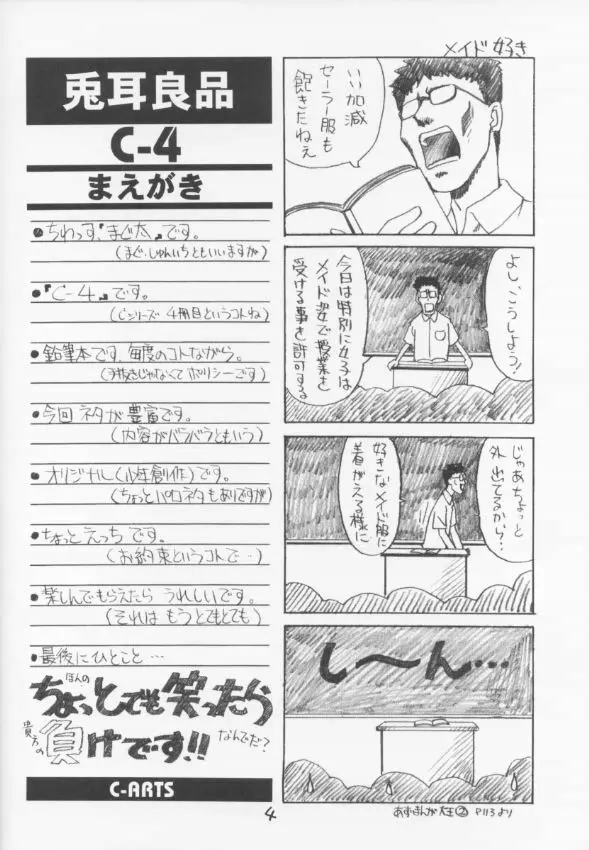 兎耳良品
C-4
まえがき
●ちわっす、『まぐ太』です。
(まぐ・じゅんいちともいいますが)
●『C-4』です。
(Cシリーズ 4冊目というコトね)
●鉛筆本です。毎度のコトながら。
(手抜きじゃなくて ポリシーです)
●今回ネタが豊富です。
(内容がバラバラともいう)
●オリジナル(少年創作)です。
(ちょっとパロネタもありですが)
●ちょっとえっちです。
(お約束というコトで…)
●楽しんでもらえたら うれしいです。
(それは もうとてもとても)
●最後にひとこと…
ほんの
ちょっとでも笑ったら
貴方の
負けです!!
なんでだ?
C-ARTS
メイド好き
いい加減
セーラー服も
飽きたねえ
よし、こうしよう!
今日は特別に女子は
メイド姿で授業を
受ける事を許可する。
じゃあちょっと
外出てるから…
好きなメイド服に
着がえる様に
し〜ん…
あずまんが大王② P113より
4